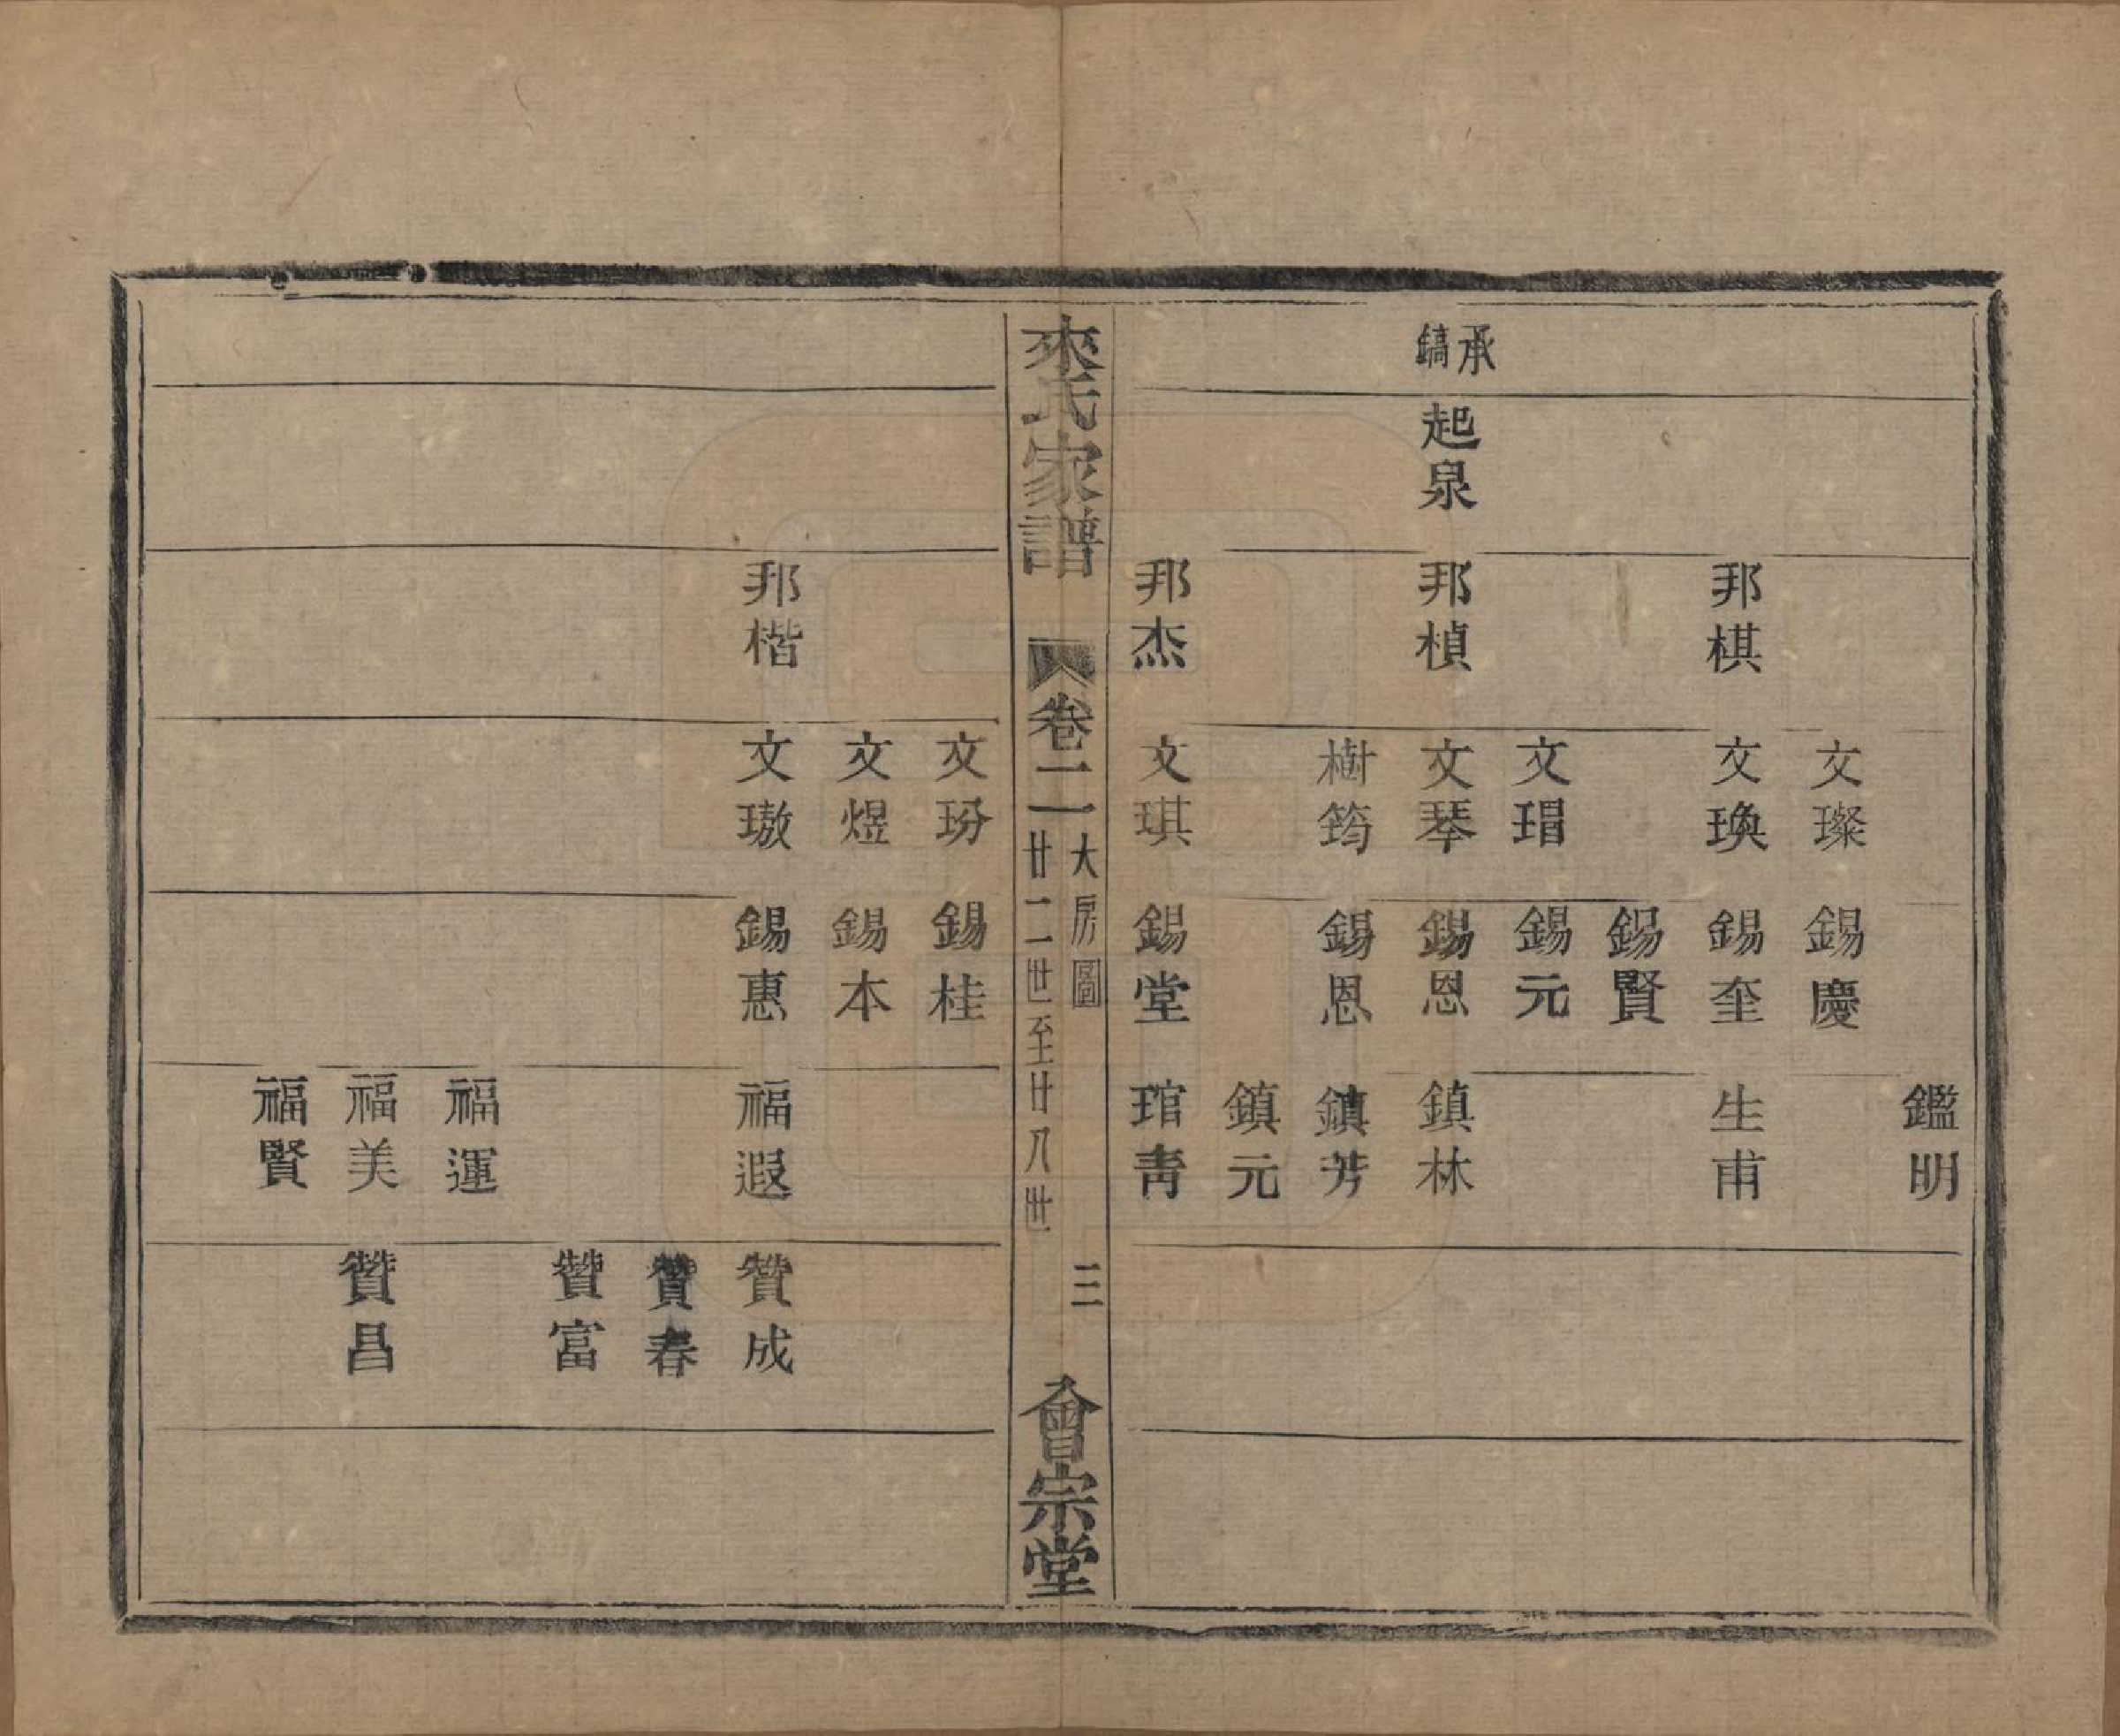 承鎬
起泉
邦棋
邦楨
邦杰
文璨
文瑍
文瑁
文琴
樹筠
文琪
錫慶
錫奎
錫賢
錫元
錫恩
錫恩
錫堂
鑑明
生甫
鎮林
鎮芳
鎮元
琯青
來氏家譜
卷二
大房圖
廿二世至廿八世
三
會宗堂
邦楷
文玢
文煜
文璈
錫桂
錫本
錫惠
福遐
福運
福美
福賢
贊成
贊春
贊富
贊昌